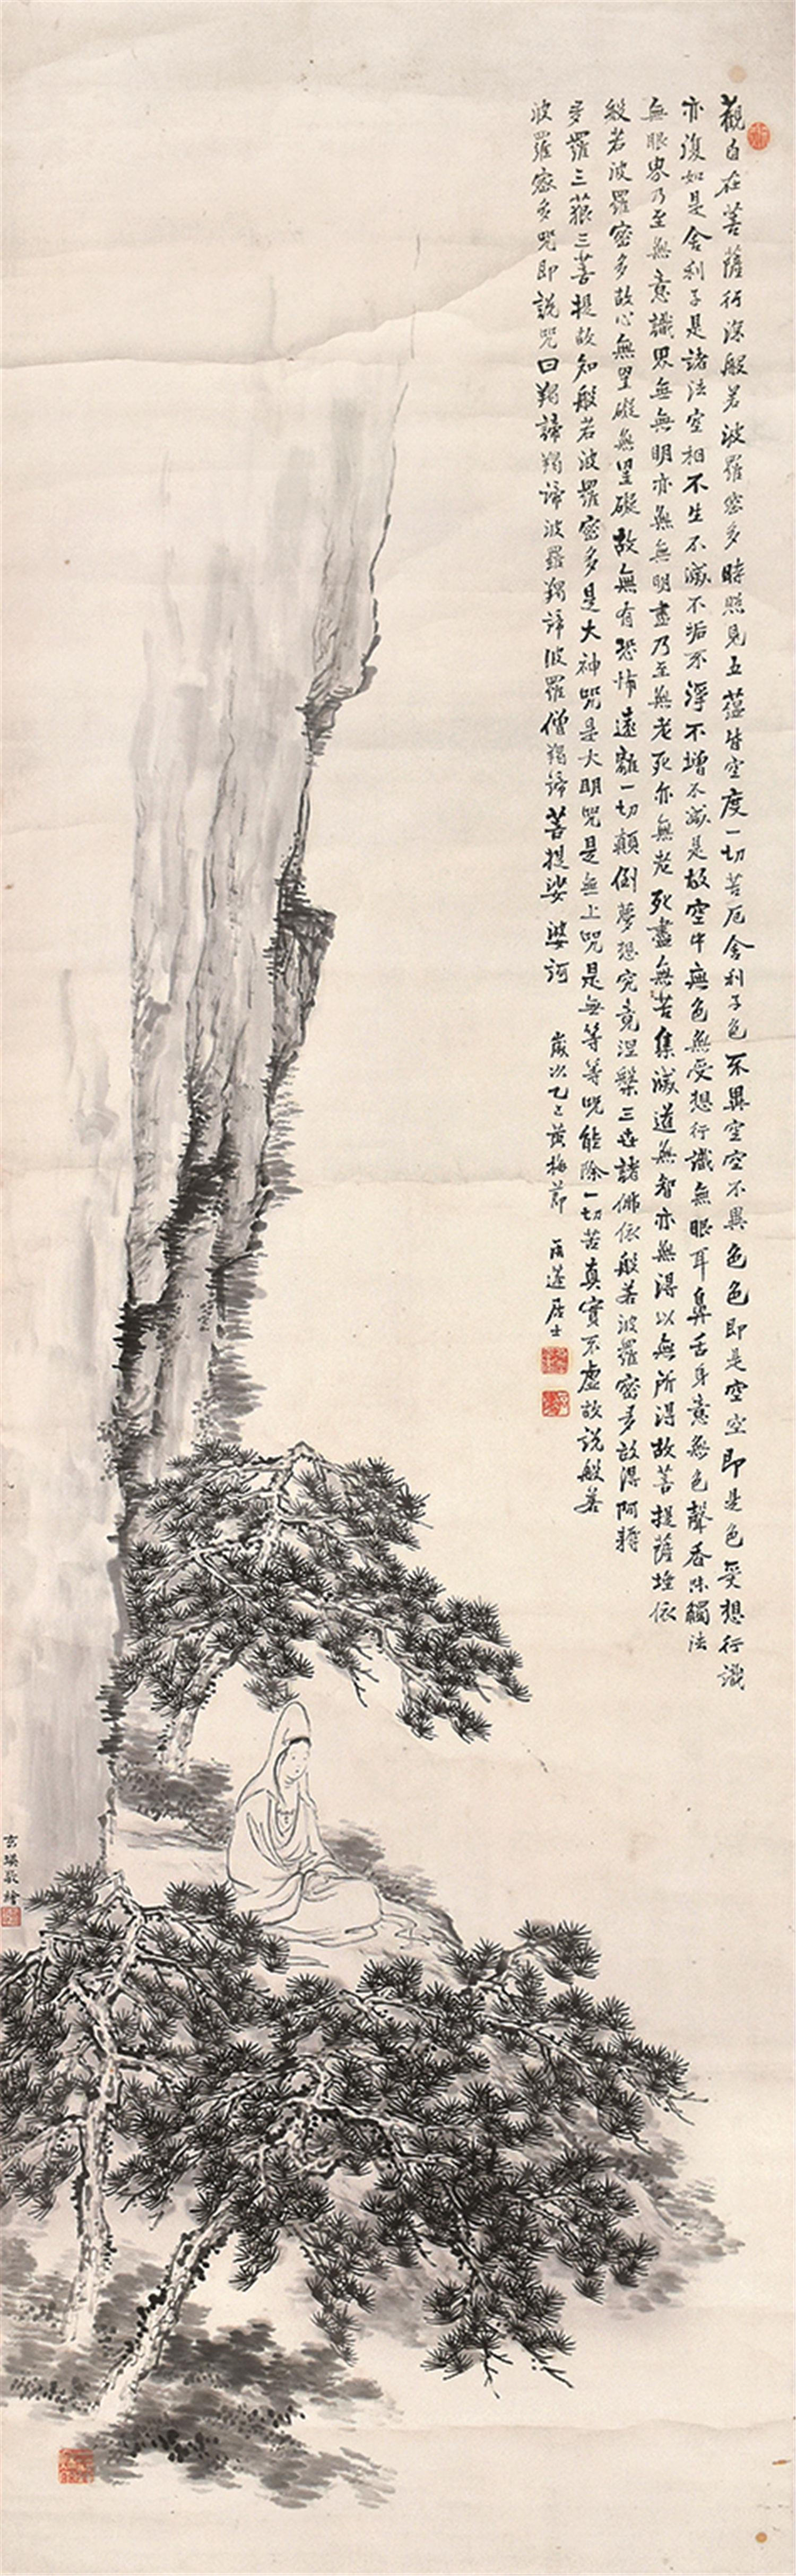 觀自在菩薩行深般若波羅密多時照見五蘊皆空度一切苦厄舍利子色不異空空不異色色即是空空即是色受想行識
亦復如是舍利子是諸法空相不生不滅不垢不淨不增不減是故空中無色無受想行識無眼耳鼻舌身意無色聲香味觸法
無眼界乃至無意識界無無明亦無無明盡乃至無老死亦無老死盡無苦集滅道無智亦無得以無所得故菩提薩埵依
般若波羅密多故心無罣礙無罣礙故無有恐怖遠離一切顛倒夢想究竟涅槃三世諸佛依般若波羅密多故得阿耨
多羅三藐三菩提故知般若波羅密多是大神咒是大明咒是無上咒是無等等咒能除一切苦真實不虛故說般若
波羅密多咒即說咒曰羯諦羯諦波羅羯諦波羅僧羯諦菩提娑婆訶 歲次乙巳黃梅節 蓮居士
玄瑛敬繪